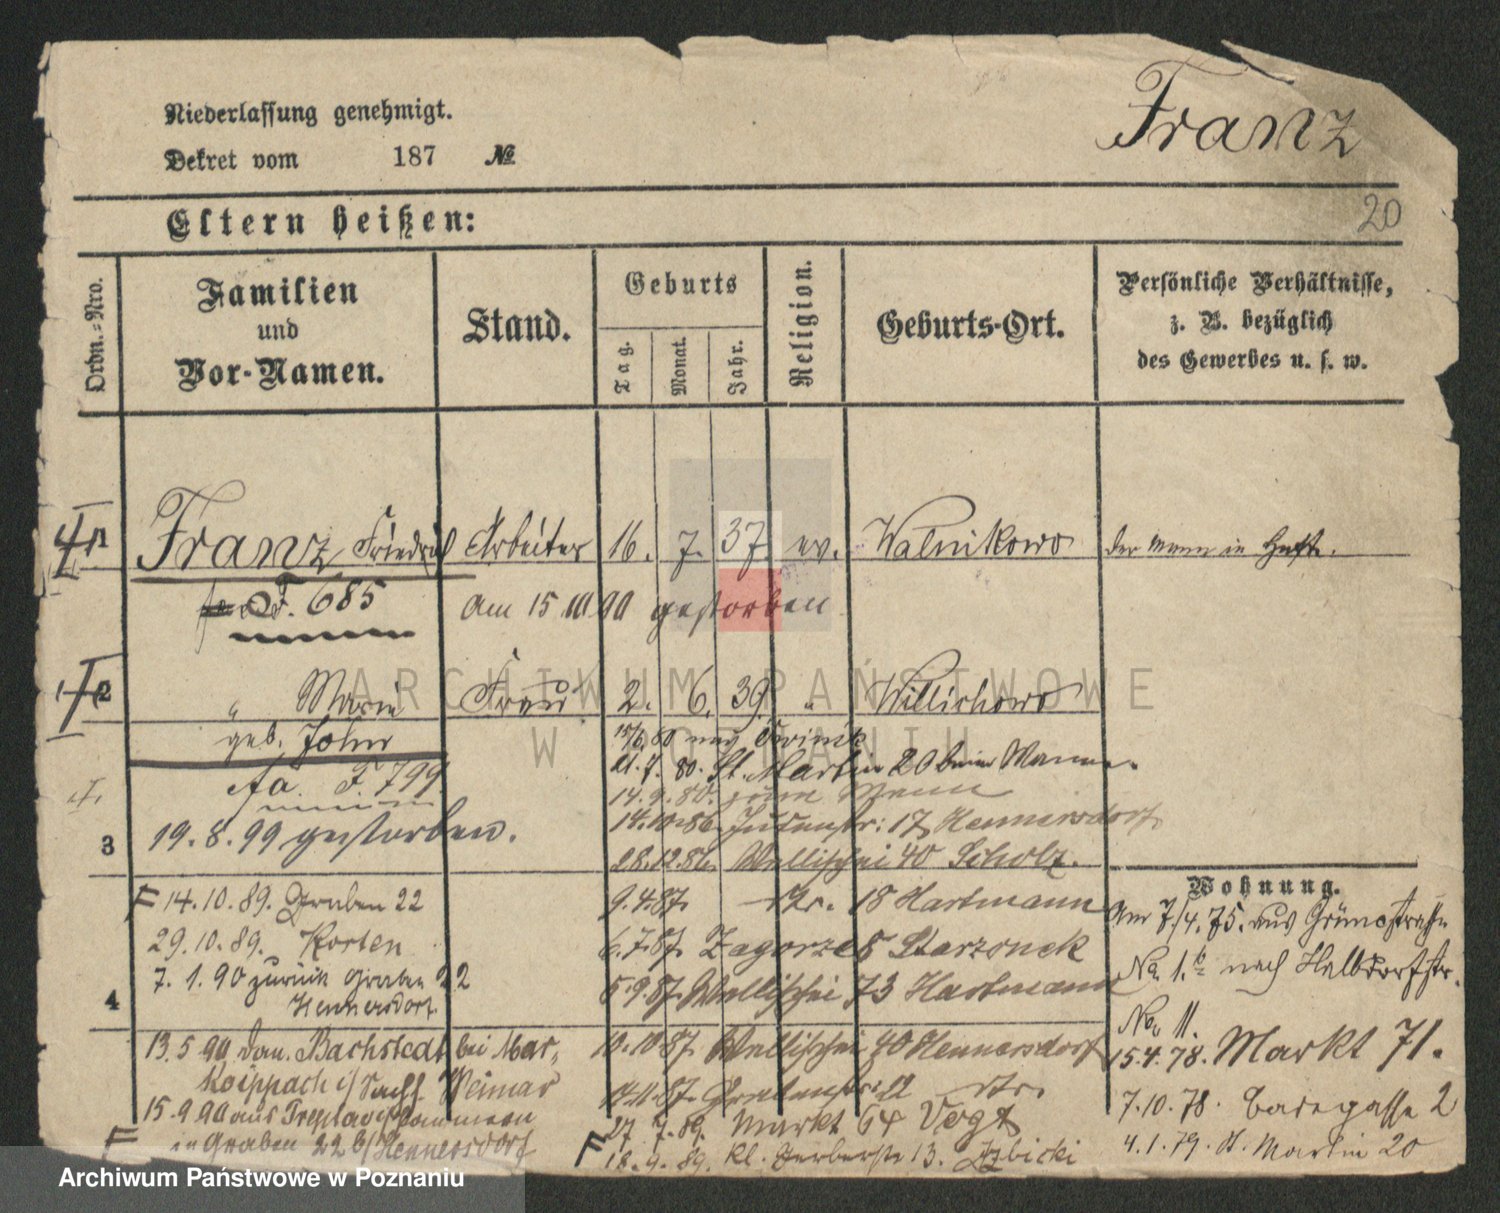 Niederlassung genehmigt.
Dekret vom 187 №
Franz
20
Eltern heißen:
Ordn.-Nro.
Familien und Vor-Namen.
Stand.
Geburts
Tag.
Monat.
Jahr.
Religion.
Geburts-Ort.
Persönliche Verhältnisse,
z. B. bezüglich
des Gewerbes u. s. w.
1 Franz, Friedrich Arbeiter 16. 7. 37 ev. Walnikowo der Mann in Haft.
F. 685 am 15 III 90 gestorben
2 " Marie Frau 2. 6. 39 "
geb. John
15/6 80
21. 7. 80. St. Martin 20 beim
F. 799
14. 9. 80. zum Mann
14.10.86. Judenstr: 17 Hennersdorf
3 19. 8. 99 gestorben.
28.12.86. Wallischei 40 Scholz.
Wohnung.
F 14. 10. 89. Graben 22
9.4.87. 18 Hartmann
Am 7/4. 75. aus Grünestraße
29. 10. 89. Korten
6.7.87 Zagorze 5 Starzonek
No. 1.b nach Halbdorfstr.
7. 1. 90 zurück Graben 22
Hennersdorf
5.9.87. Wallischei 73 Hartmann
4
No. 11.
13. 5 90 Bachstedt bei Mar-
10.10.87. Wallischei 40 Hennersdorf
15.4.78. Markt 71.
i/ Sachs. Weimar
7.10.78. 2
15. 9 90 aus Treptow i/ Pommern
27. 7. 89. Markt 64 Vogt
F in Graben 22 b/ Hennersdorf
F 18. 9. 89. Kl. Gerberstr 13.
4. 1. 79. St. Martin 20
ARCHIWUM PAŃSTWOWE
W POZNANIU
Archiwum Państwowe w Poznaniu